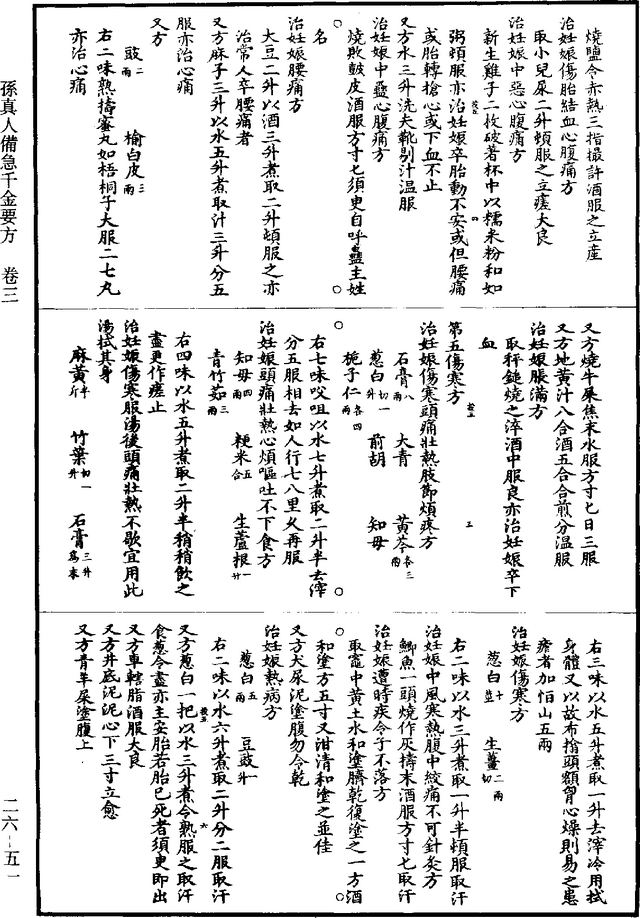 孫真人備急千金要方　卷三
燒鹽令赤熱三指撮許酒服之立產
治妊娠傷胎結血心腹痛方
取小兒尿二升頓服之立瘥大良
治妊娠中惡心腹痛方
新生雞子二枚破著杯中以糯米粉和如
粥頓服亦治妊娠卒胎動不安或但腰痛
或胎轉搶心或下血不止
又方水三升洗夫靴剔汁溫服
治妊娠中蠱心腹痛方
燒敗鼓皮酒服方寸匕須臾自呼蠱主姓
名
治妊娠腰痛方
大豆二升以酒三升煮取二升頓服之亦
治常人卒腰痛者
又方麻子三升以水五升煮取汁三升分五
服亦治心痛
又方
豉二兩　榆白皮三兩
右二味熟擣蜜丸如梧桐子大服二七丸
亦治心痛
又方燒牛屎焦末水服方寸匕日三服
又方地黃汁八合酒五合合煎分溫服
治妊娠脹滿方
取秤鎚燒之淬酒中服良亦治妊娠卒下
血
第五傷寒方
治妊娠傷寒頭痛壯熱肢節煩疼方
石膏八兩　大青　黃芩各三兩
蔥白切一升　前胡　知母
梔子仁各四兩
右七味㕮咀以水七升煮取二升半去滓
分五服相去如人行七八里久再服
治妊娠頭痛壯熱心煩嘔吐不下食方
知母四兩　粳米五合　生蘆根一升
青竹茹三兩
右四味以水五升煮取二升半稍稍飲之
盡更作瘥止
治妊娠傷寒服湯後頭痛壯熱不歇宜用此
湯拭其身
麻黃半斤　竹葉切一升　石膏三升為末
右三味以水五升煮取一升去滓冷用拭
身體又以故布搶頭額胷心燥則易之患
瘧者加恒山五兩
治妊娠傷寒方
蔥白十莖　生薑二兩切
右二味以水三升煮取一升半頓服取汗
治妊娠中風寒熱腹中絞痛不可針灸方
鯽魚一頭燒作灰擣末酒服方寸匕取汗
治妊娠遭時疾令子不落方
取竈中黃土水和塗臍乾復塗之一方酒
和塗方五寸又泔清和塗之並佳
又方犬尿泥塗腹勿令乾
治妊娠熱病方
蔥白五兩　豆豉二升
右二味以水六升煮取二升分二服取汗
又方蔥白一把以水三升煮令熟服之取汗
食蔥令盡亦主安胎若胎已死者須臾即出
又方車轄脂酒服大良
又方井底泥泥心下三寸立愈
又方青羊屎塗腹上
二六－五一